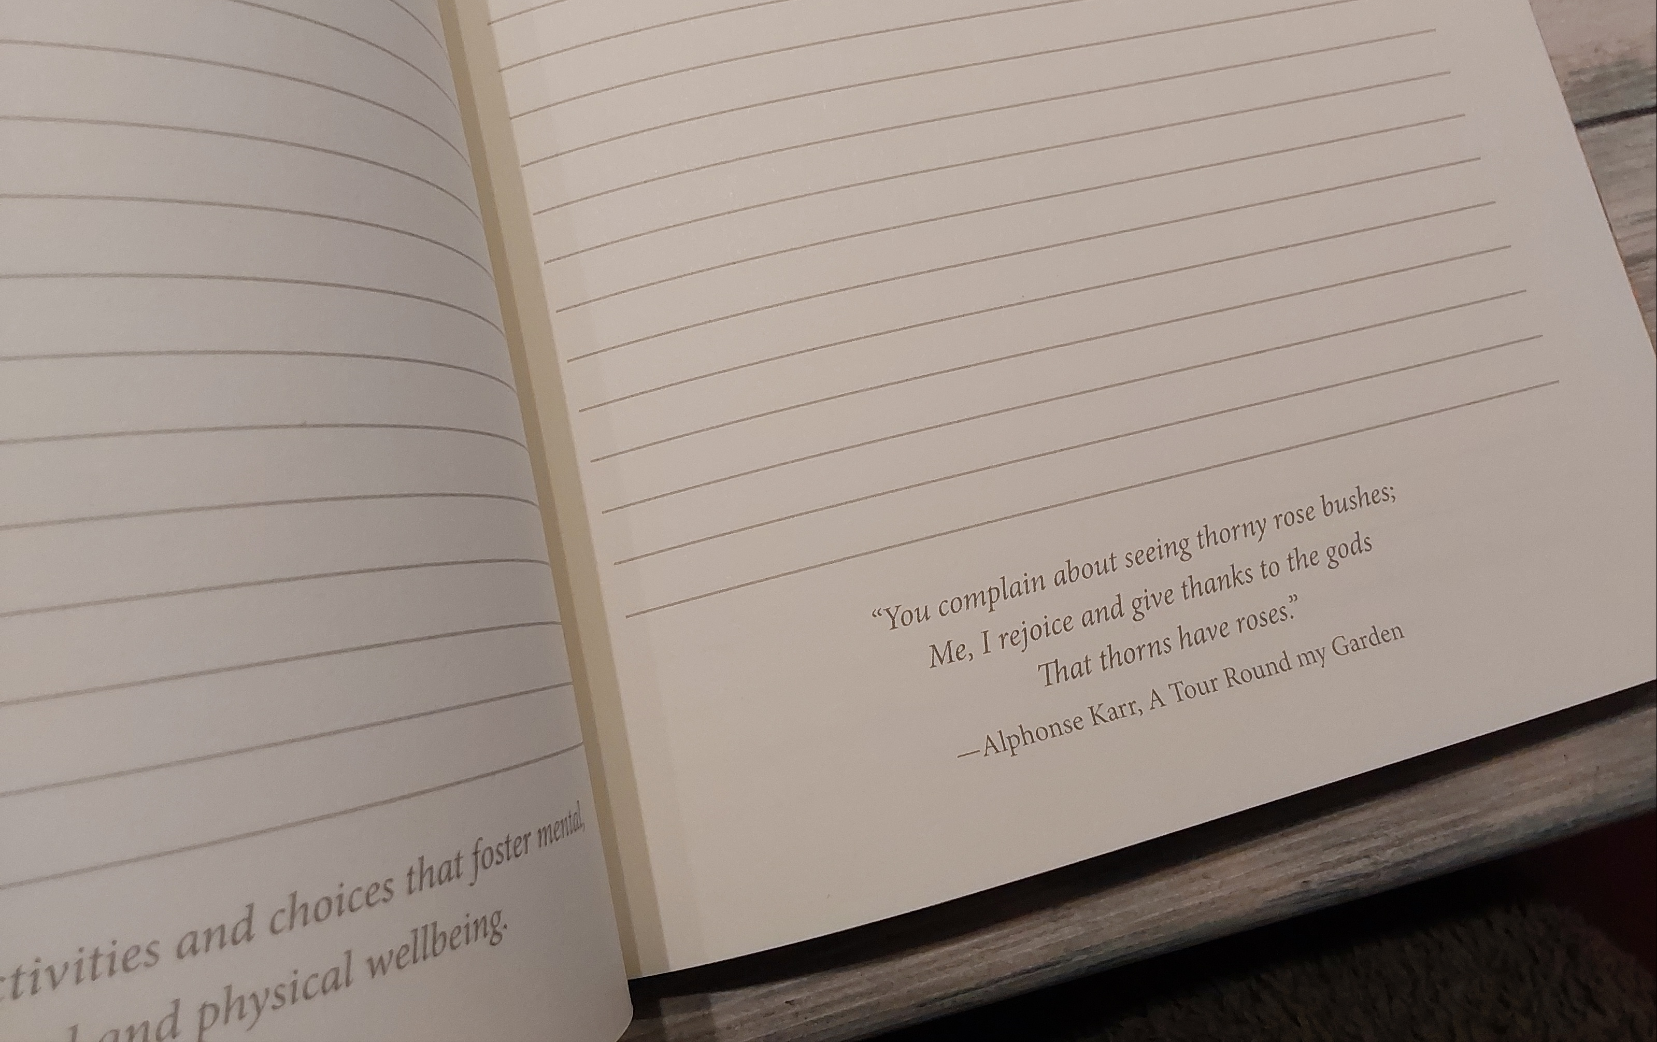 activities and choices that foster mental,
and physical wellbeing.
“You complain about seeing thorny rose bushes;
Me, I rejoice and give thanks to the gods
That thorns have roses.”
—Alphonse Karr, A Tour Round my Garden